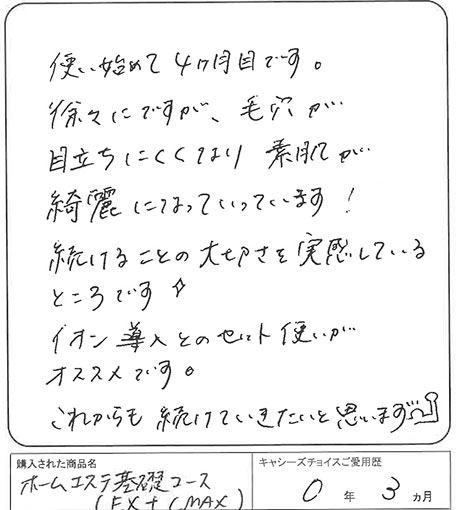 使い始めて4ヶ月目です。
徐々にですが、毛穴が
目立ちにくくなり 素肌が
綺麗になっていっています！
続けることの大切さを実感している
ところです
イオン導入とのセット使いが
オススメです。
これからも続けていきたいと思います
購入された商品名
キャシーズチョイスご愛用歴
ホームエステ基礎コース
(EX+CMAX)
0 年 3 ヵ月